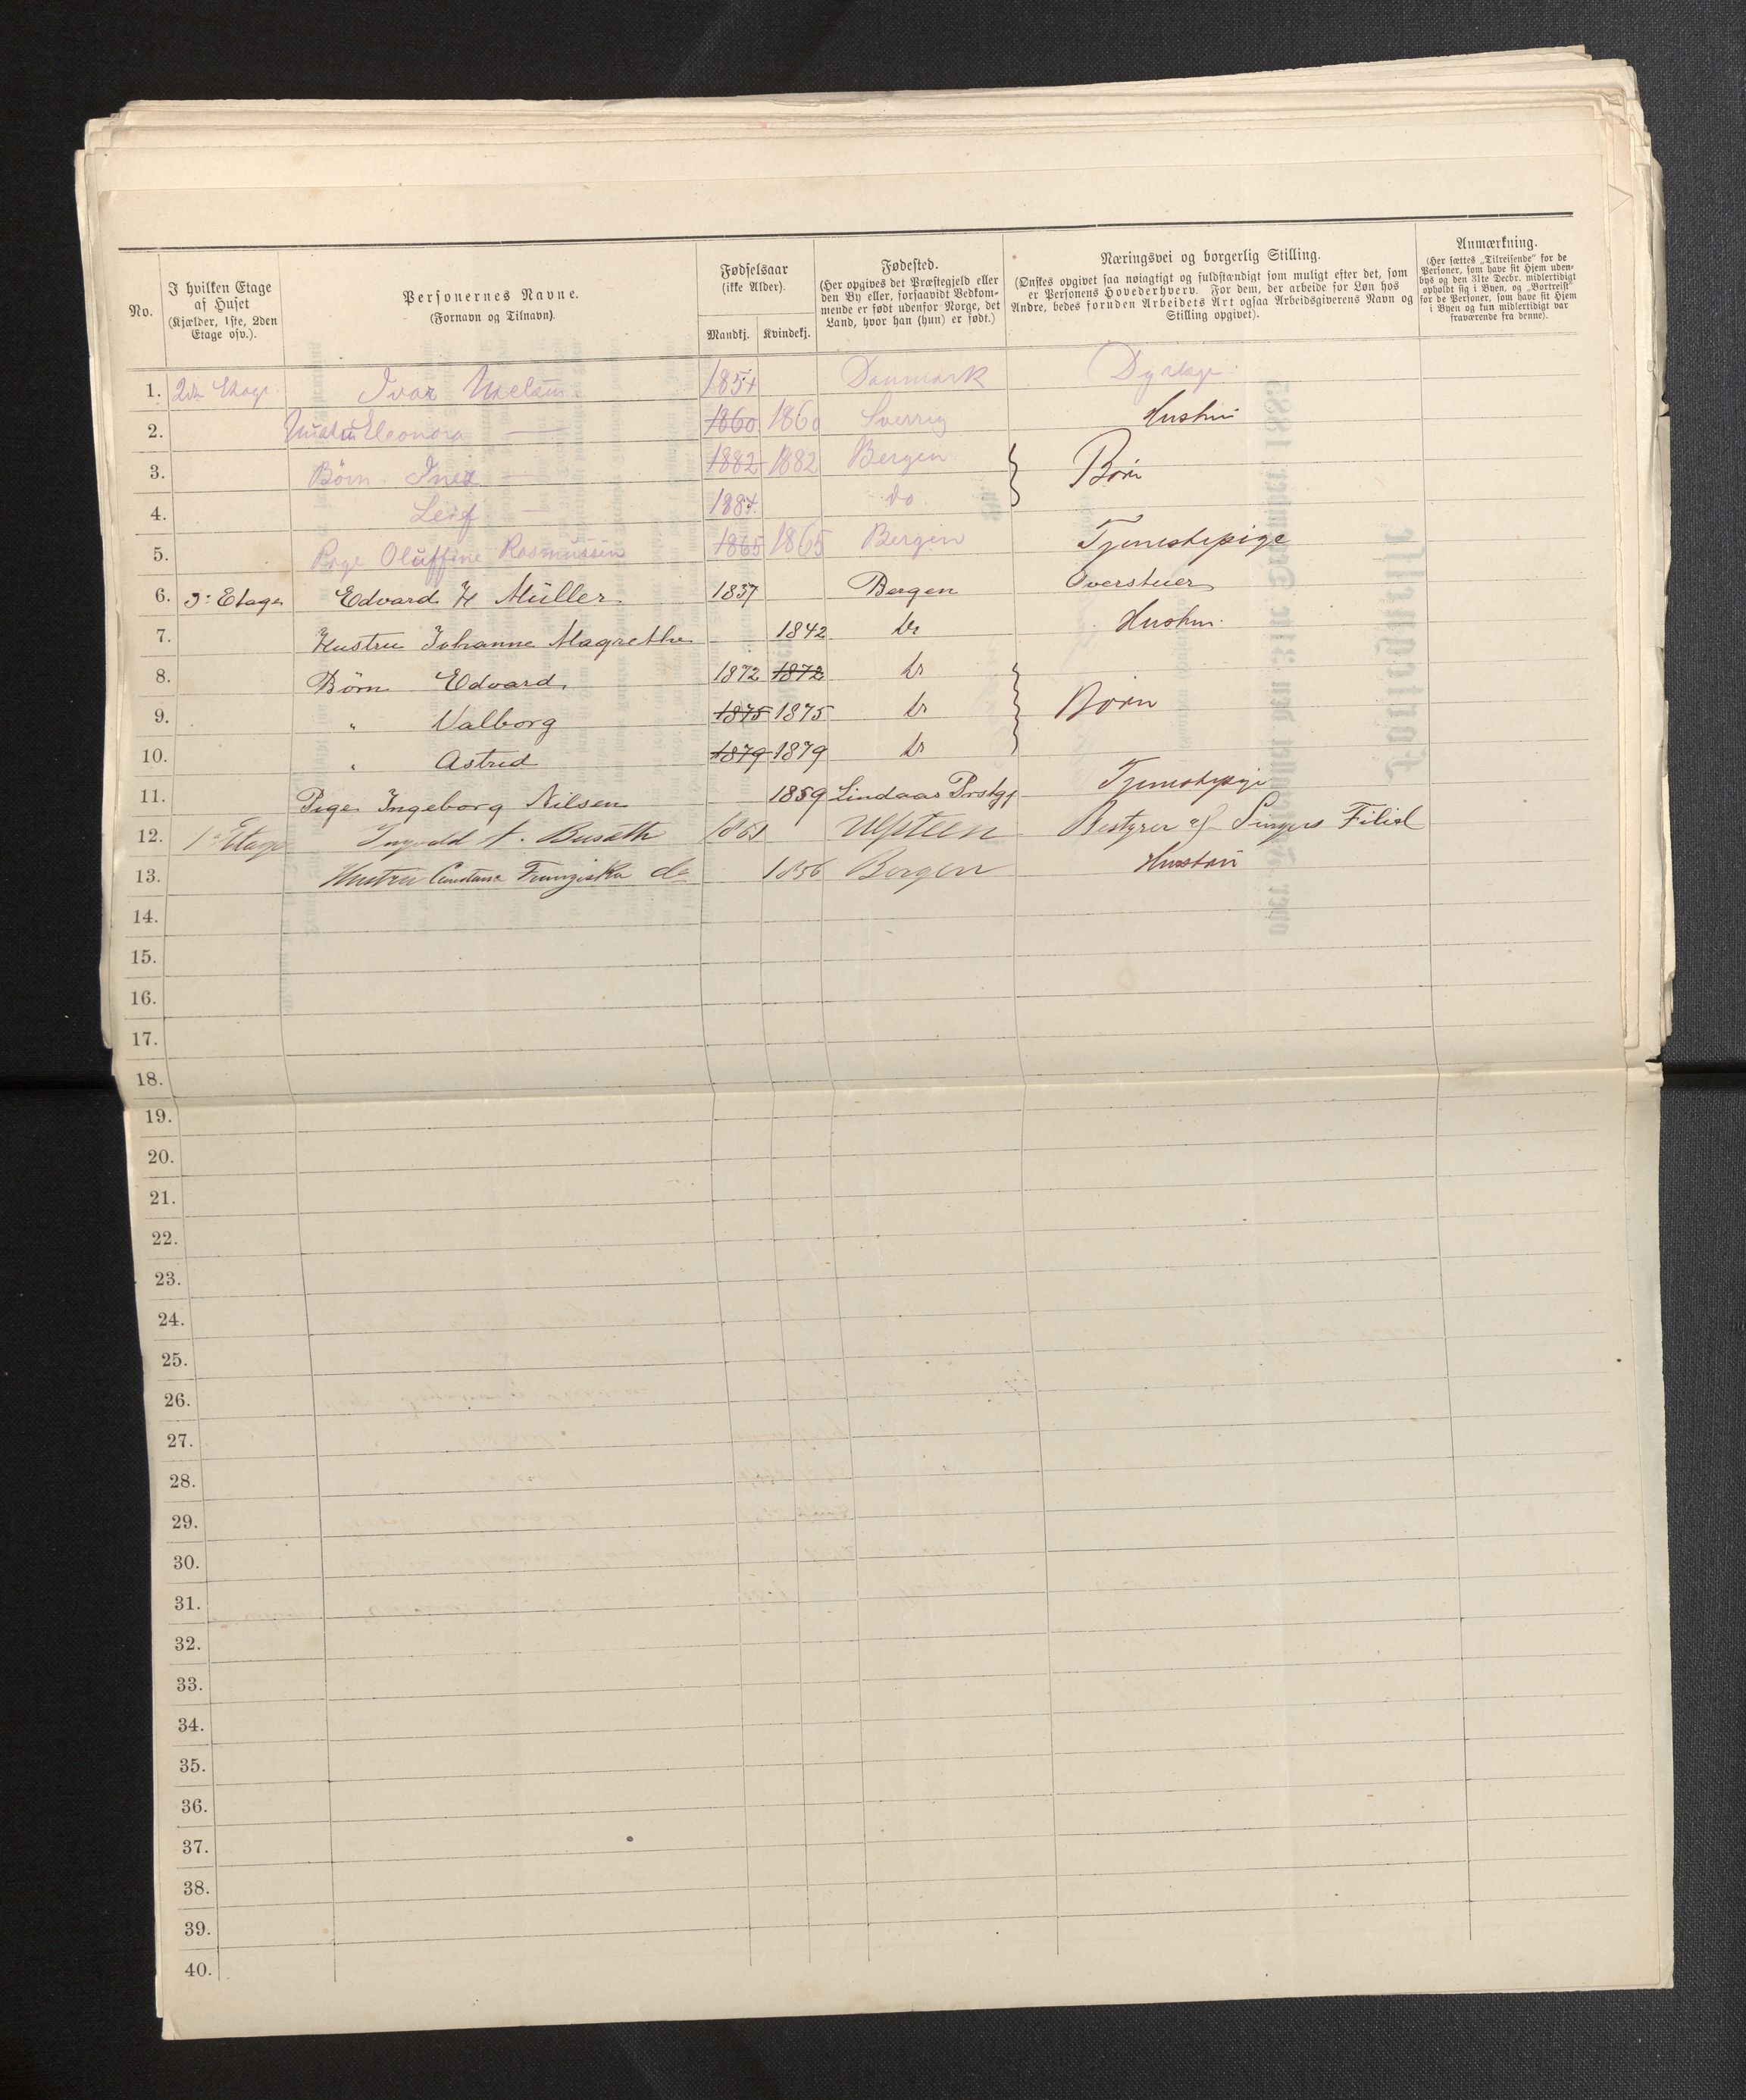 No.
I hvilken Etage af Huset (Kjælder, 1ste, 2den Etage osv.).
Personernes Navne. (Fornavn og Tilnavn).
Fødselsaar (ikke Alder).
Mandkj. Kvindekj.
Fødested. (Her opgives det Præstegjeld eller den By eller, forsaavidt Vedkommende er født udenfor Norge, det Land, hvor han (hun) er født.)
Næringsvei og borgerlig Stilling. (Ønskes opgivet saa nøiagtigt og fuldstændigt som muligt efter det, som er Personens Hovederhverv. For dem, der arbeide for Løn hos Andre, bedes foruden Arbeidets Art ogsaa Arbeidsgiverens Navn og Stilling opgivet).
Anmærkning. (Her sættes „Tilreisende“ for de Personer, som have sit Hjem udenbys og den 31te Decbr. midlertidigt opholdt sig i Byen, og „Bortreist“ for de Personer, som have sit Hjem i Byen og kun midlertidigt var fraværende fra denne).
1. Ivar Nielsen 1854 Danmark Dyrlæge
2. Hustru Eleonora — 1860 1860 Sverrig Hustru
3. Børn Inez — 1882 1882 Bergen Børn
4. Leif — 1884 do
5. Pige Oluffine Rasmussen 1865 1865 Bergen Tjenestepige
6. 3: Etage Edvard H Müller 1837 Bergen
7. Hustru Johanne Magrethe 1842 Do Hustru
8. Børn Edvard 1872 1872 Do
9. " Valborg 1875 1875 Do Børn
10. " Astrid 1879 1879 Do
11. Pige Ingeborg Nilsen 1859 Lindaas Prstgj Tjenestepige
12. 1ste Etage Ingvald A. 1861 Ulfsteen Bestyrer af Singers Filial
13. Hustru Constance Franziska do 1856 Bergen Hustru
14.
15.
16.
17.
18.
19.
20.
21.
22.
23.
24.
25.
26.
27.
28.
29.
30.
31.
32.
33.
34.
35.
36.
37.
38.
39.
40.